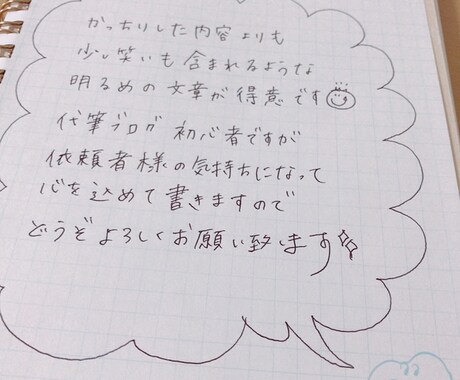 かっちりした内容よりも
少し笑いも含まれるような
明るめの文章が得意です
代筆ブログ初心者ですが
依頼者様の気持ちになって
心を込めて書きますので
どうぞよろしくお願い致します